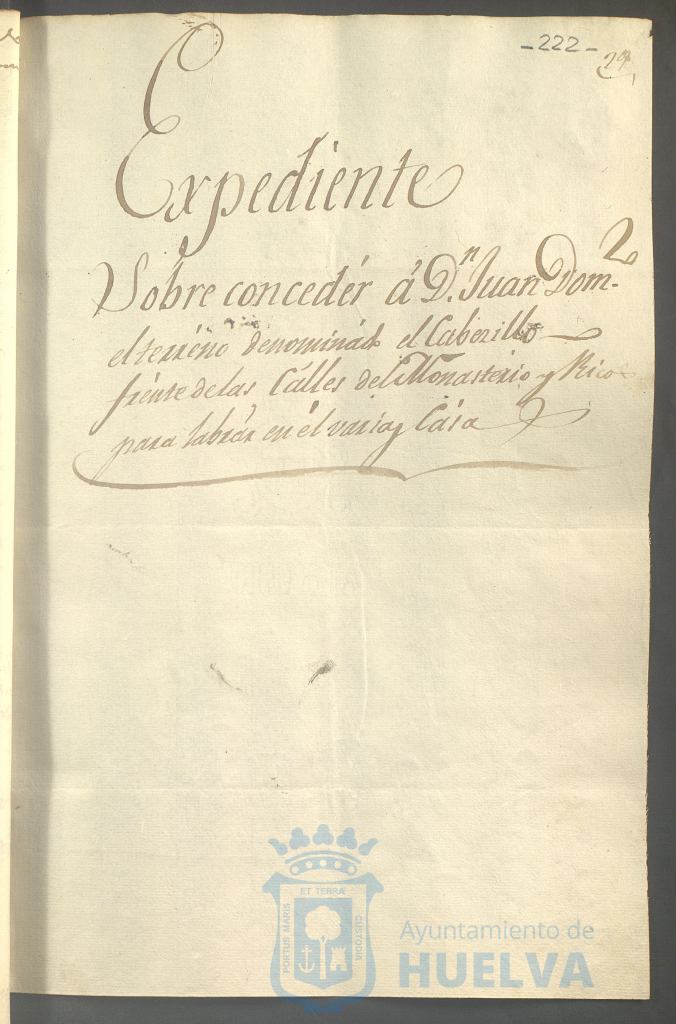 -222-
29
Expediente
Sobre concedér á D.n Juan Dom.z
el terréno denominado el Cabezillo
frénte delas Cálles del Monastério y Rico
para labrár en él varias Cása
ET TERRÆ
PORTUS MARIS
CUSTODIA
Ayuntamiento de
HUELVA